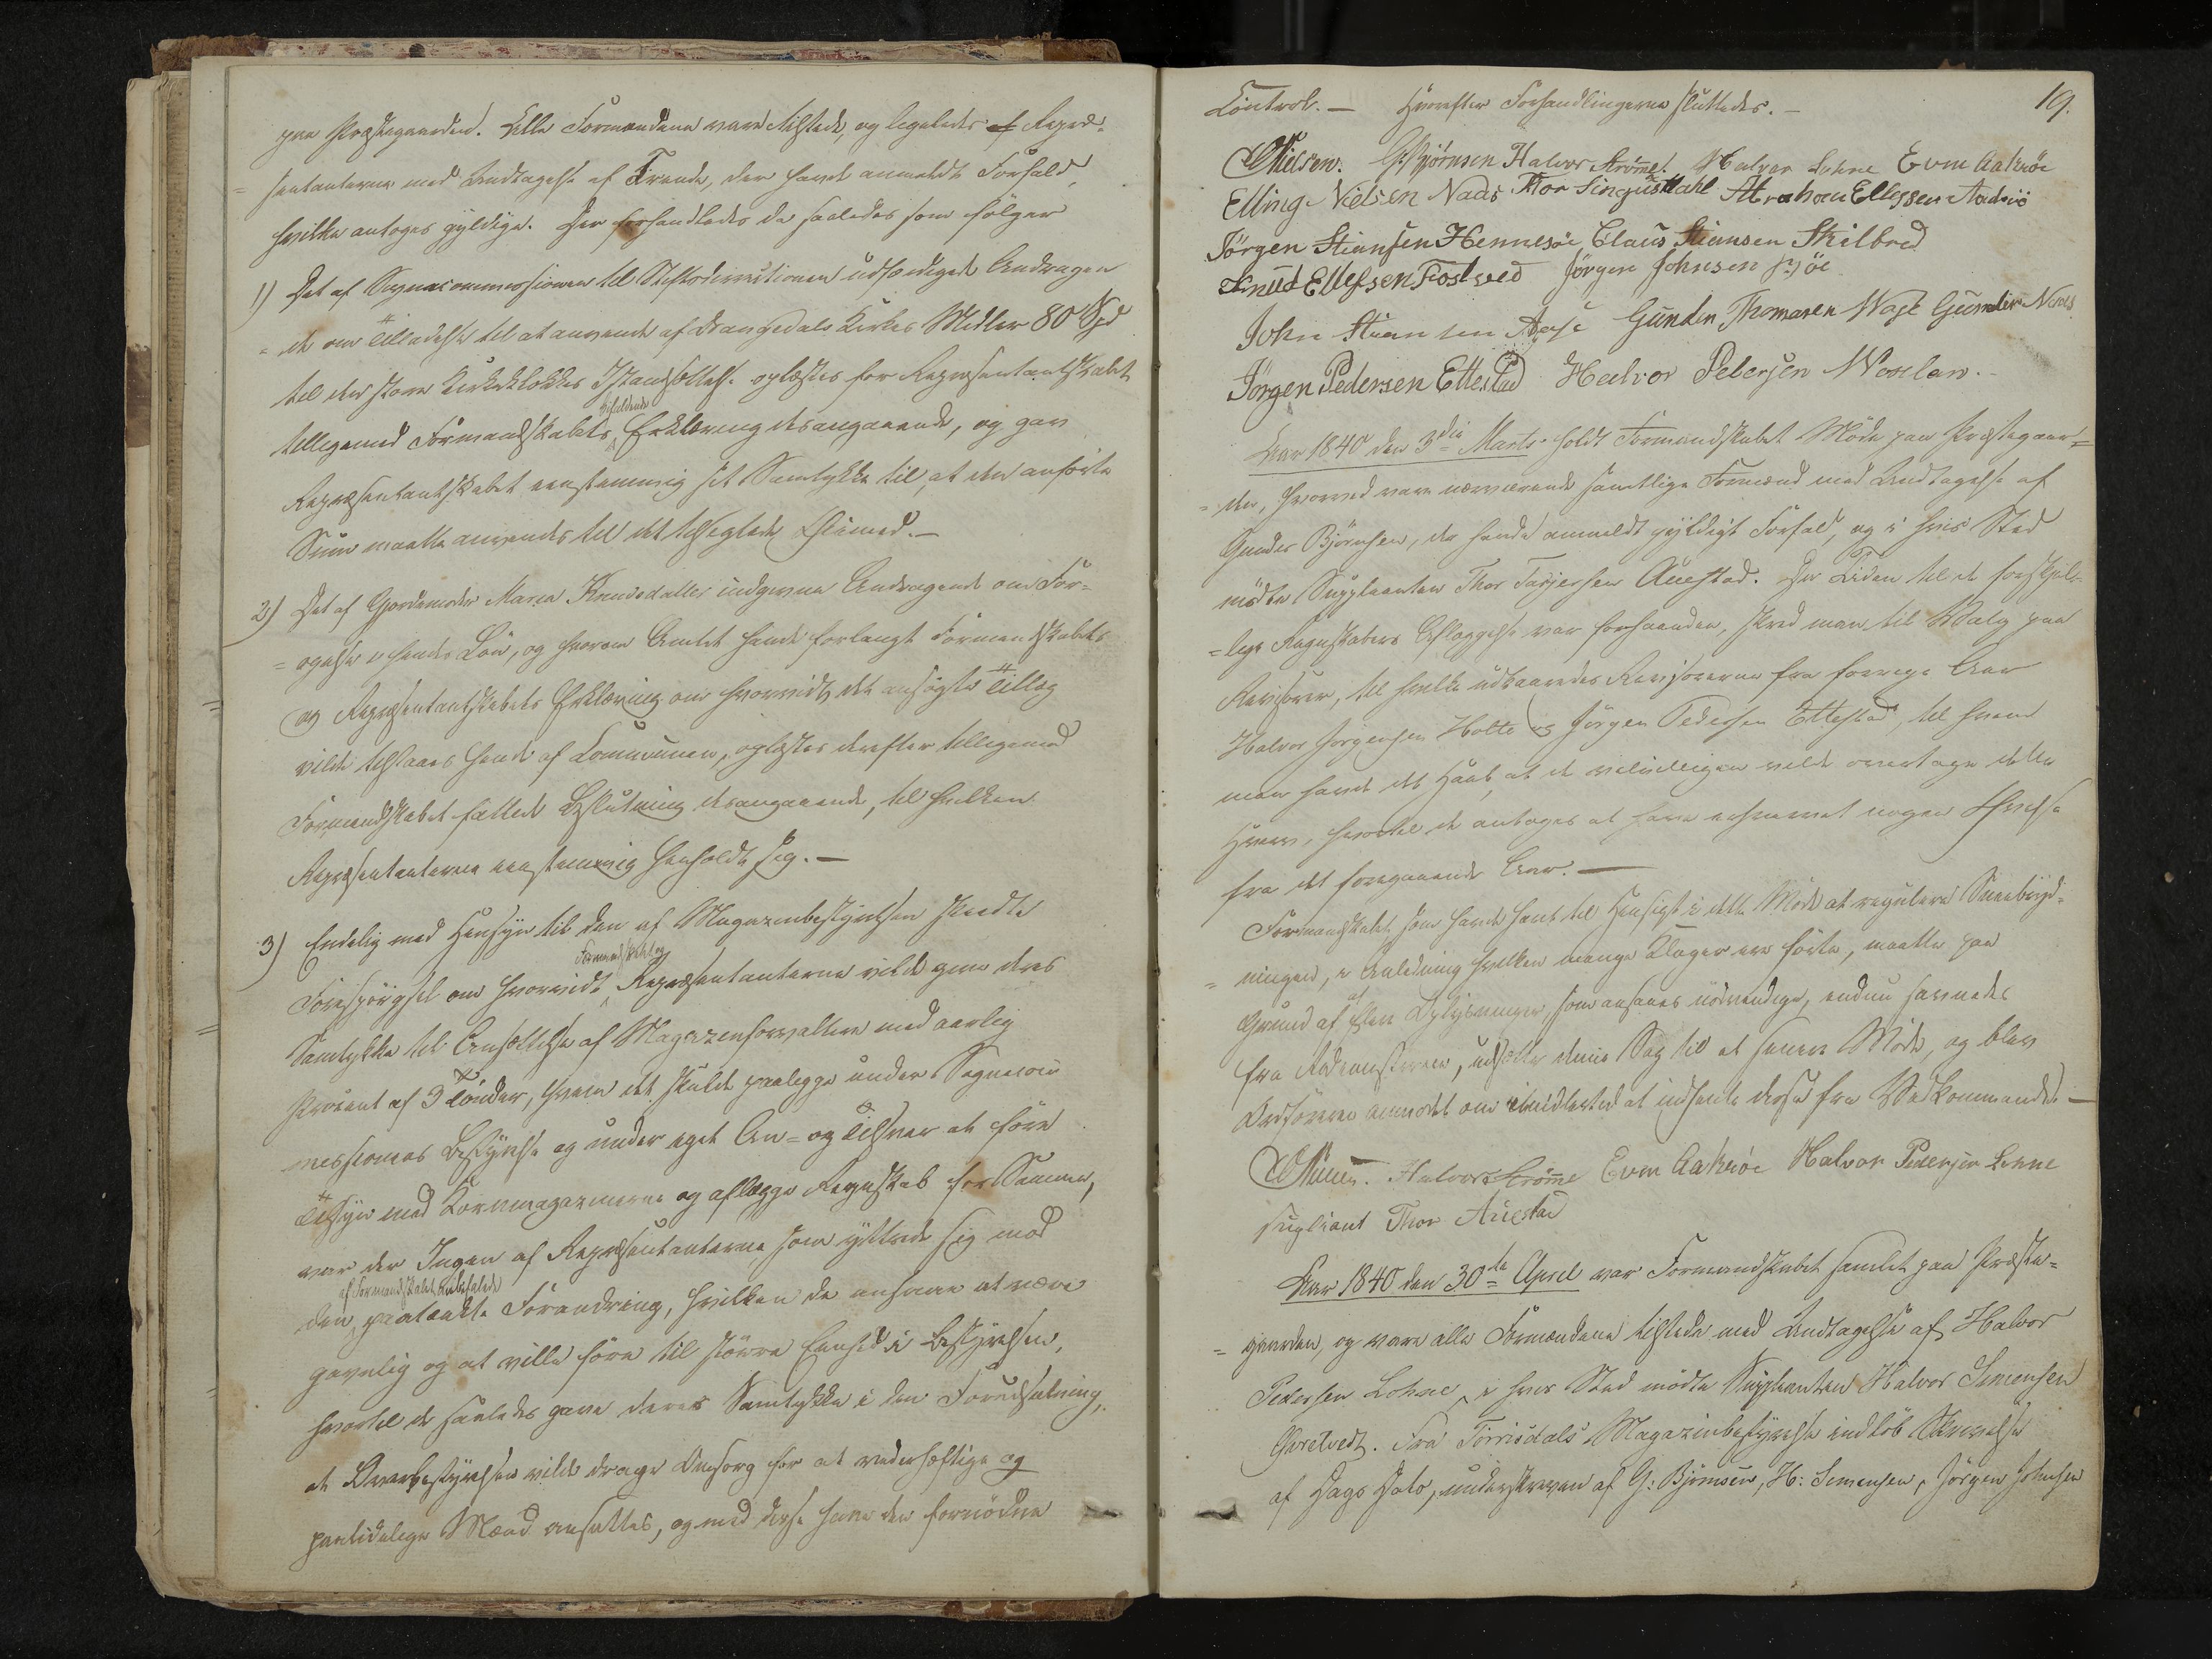 paa Præstegaarden. Alle Formændene vare tilstede, og ligeledes af Repræ-
= sentanterne med Undtagelse af Trende, der havde anmeldt Forfald,
hvilke antoges gyldige. Der forhandledes da saaledes som følger
1) Det af Sognecommissionen til Stiftsdirectionen udfærdigede Andragen
= de om Tilladelse til at anvende af Drangedals Kirkes Midler 80 Spd
til den store Kirkeklokkes Istandsættelse oplæstes for Repræsentantskabet
tilligemed Formandskabets bifaldende Erklæring desangaaende, og gav
Repræsentantskabet eenstemmig sit Samtykke til, at den anførte
Sum maatte anvendes til det tilsigtede Øiemed. —
2) Det af Gjordemoder Maren Knudsdatter indgivne Andragende om For-
= øgelse i hendes Løn, og hvorom Amtet havde forlangt Formandskabets
og Repræsentantskabets Erklæring om hvorvidt det ansøgte Tillæg
vilde tilstaaes hende af Communen, oplæstes derefter tilligemed
Formandskabet fattede Beslutning desangaaende, til hvilken
Repræsentanterne eenstemmig henholdt sig. —
3) Endelig med Hensyn til den af Magazinbestyrelsen skeedte
Forespørgsel om hvorvidt Formandskabet og Repræsentanterne vilde give deres
Samtykke til Ansættelse af Magazinforvaltere med aarlig
Procent af 3 Tønder, hvem det skulde paalægge under Sognecom
missionens Bestyrelse og under eget An- og Tilsvar at føre
Tilsyn med Kornmagazinerne og aflægge Regnskab for Samme,
var der Ingen af Repræsentanterne, som yttrede sig mod
den af Formandskabet anbefalede paatænkte Forandring, hvilken de ansaae at være
gavnlig og at ville føre til større Eenhed i Bestyrelsen,
hvortil de saaledes gave deres Samtykke i den Forudsætning,
at Overbestyrelsen vilde drage Omsorg for at vederhæftige og
paalidelige Mænd ansattes, og med disse have den fornødne
19.
Control. — Hvorefter Forhandlingerne sluttedes. —
Nielsen. G. Bjørnsen Halvor Strømme. Halvor Lohne Even Aakrøe
Elling Nielsen Naas Thor Abraham Ellefsen
Jørgen Stiansen Hennesøe Claus Stiansen Skilbred
Knud Ellefsen Tostved Jørgen Johnsen
John Gunder Thomasen Wage Gunder
Jørgen Pedersen Ettestad Halvor Petersen Woxlav.
Aar 1840 den 3die Marts holdt Formandskabet Møde paa Præstegaar-
= den, hvorved vare nærværende samtlige Formænd med Undtagelse af
Gunder Bjørnsen, der havde anmeldt gyldigt Forfald, og i hvis Sted
mødte Suppleanten Thor Tarjersen Auestad. Da Tiden til de forskjel-
= lige Regnskabers Aflæggelse var forhaanden, skred man til Valg paa
Revisorer, til hvilke udkaaredes Revisorerne fra forrige Aar
Halvor Jørgensen Holte og Jørgen Pedersen Ettestad, til hvem
man havde det Haab, at de velvilligen vilde overtage dette
Hverv, hvortil de antoges at have erhvervet nogen Øvelse
fra det foregaaende Aar. —
Formandskabet, som havde havt til Hensigt i dette Møde at regulere Sneebryd-
= ningen, i Anledning hvilken mange Klager ere førte, maatte paa
Grund af at flere Oplysninger, som ansaaes nødvendige, endnu savnedes
fra Rodemesterne, udsætte denne Sag til et senere Møde, og blev
Ordføreren anmodet om imidlertid at indhente disse fra Vedkommende. —
Nielsen. Halvor Strømme Even Aakrøe Halvor Pedersen Lohne
supliant Thor Auestad
Aar 1840 den 30te April var Formandskabet samlet paa Præste-
= gaarden, og vare alle Formændene tilstede med Undtagelse af Halvor
Pedersen Lohne, i hvis Sted mødte Suppleanten Halvor Simensen
Gretvedt. Fra Tørrisdals Magazinbestyrelse indløb Skrivelse
af Dags Dato, underskreven af G: Bjørnsen, H: Simensen, Jørgen Johnsen